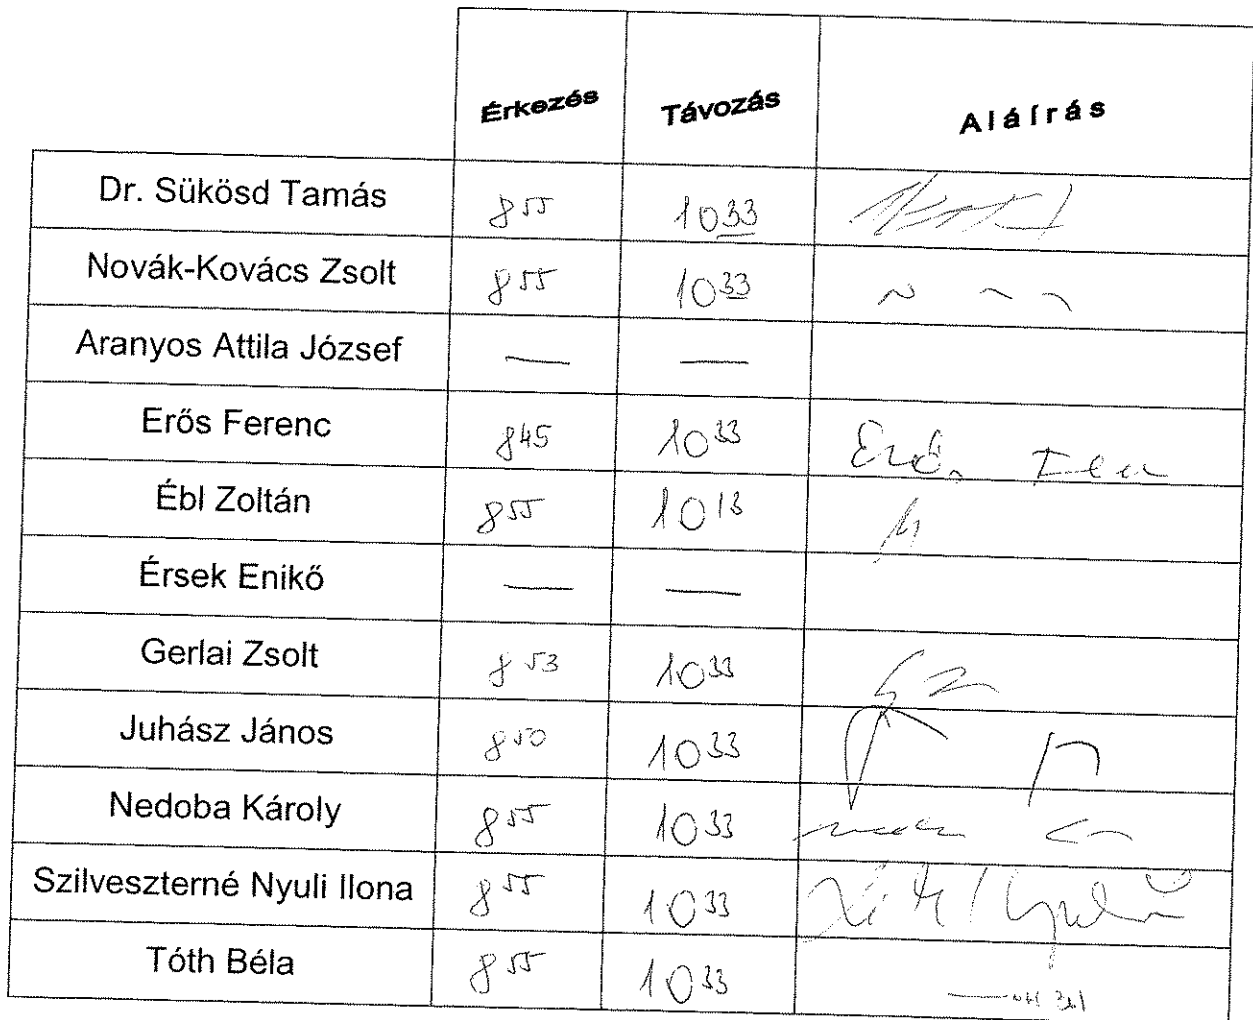 Érkezés Távozás Aláírás
Dr. Sükösd Tamás 8 55 10 33
Novák-Kovács Zsolt 8 55 10 33
Aranyos Attila József — —
Erős Ferenc 8 45 10 33 Erős
Ébl Zoltán 8 55 10 13
Érsek Enikő — —
Gerlai Zsolt 8 53 10 33
Juhász János 8 50 10 33
Nedoba Károly 8 55 10 33
Szilveszterné Nyuli Ilona 8 55 10 33
Tóth Béla 8 55 10 33